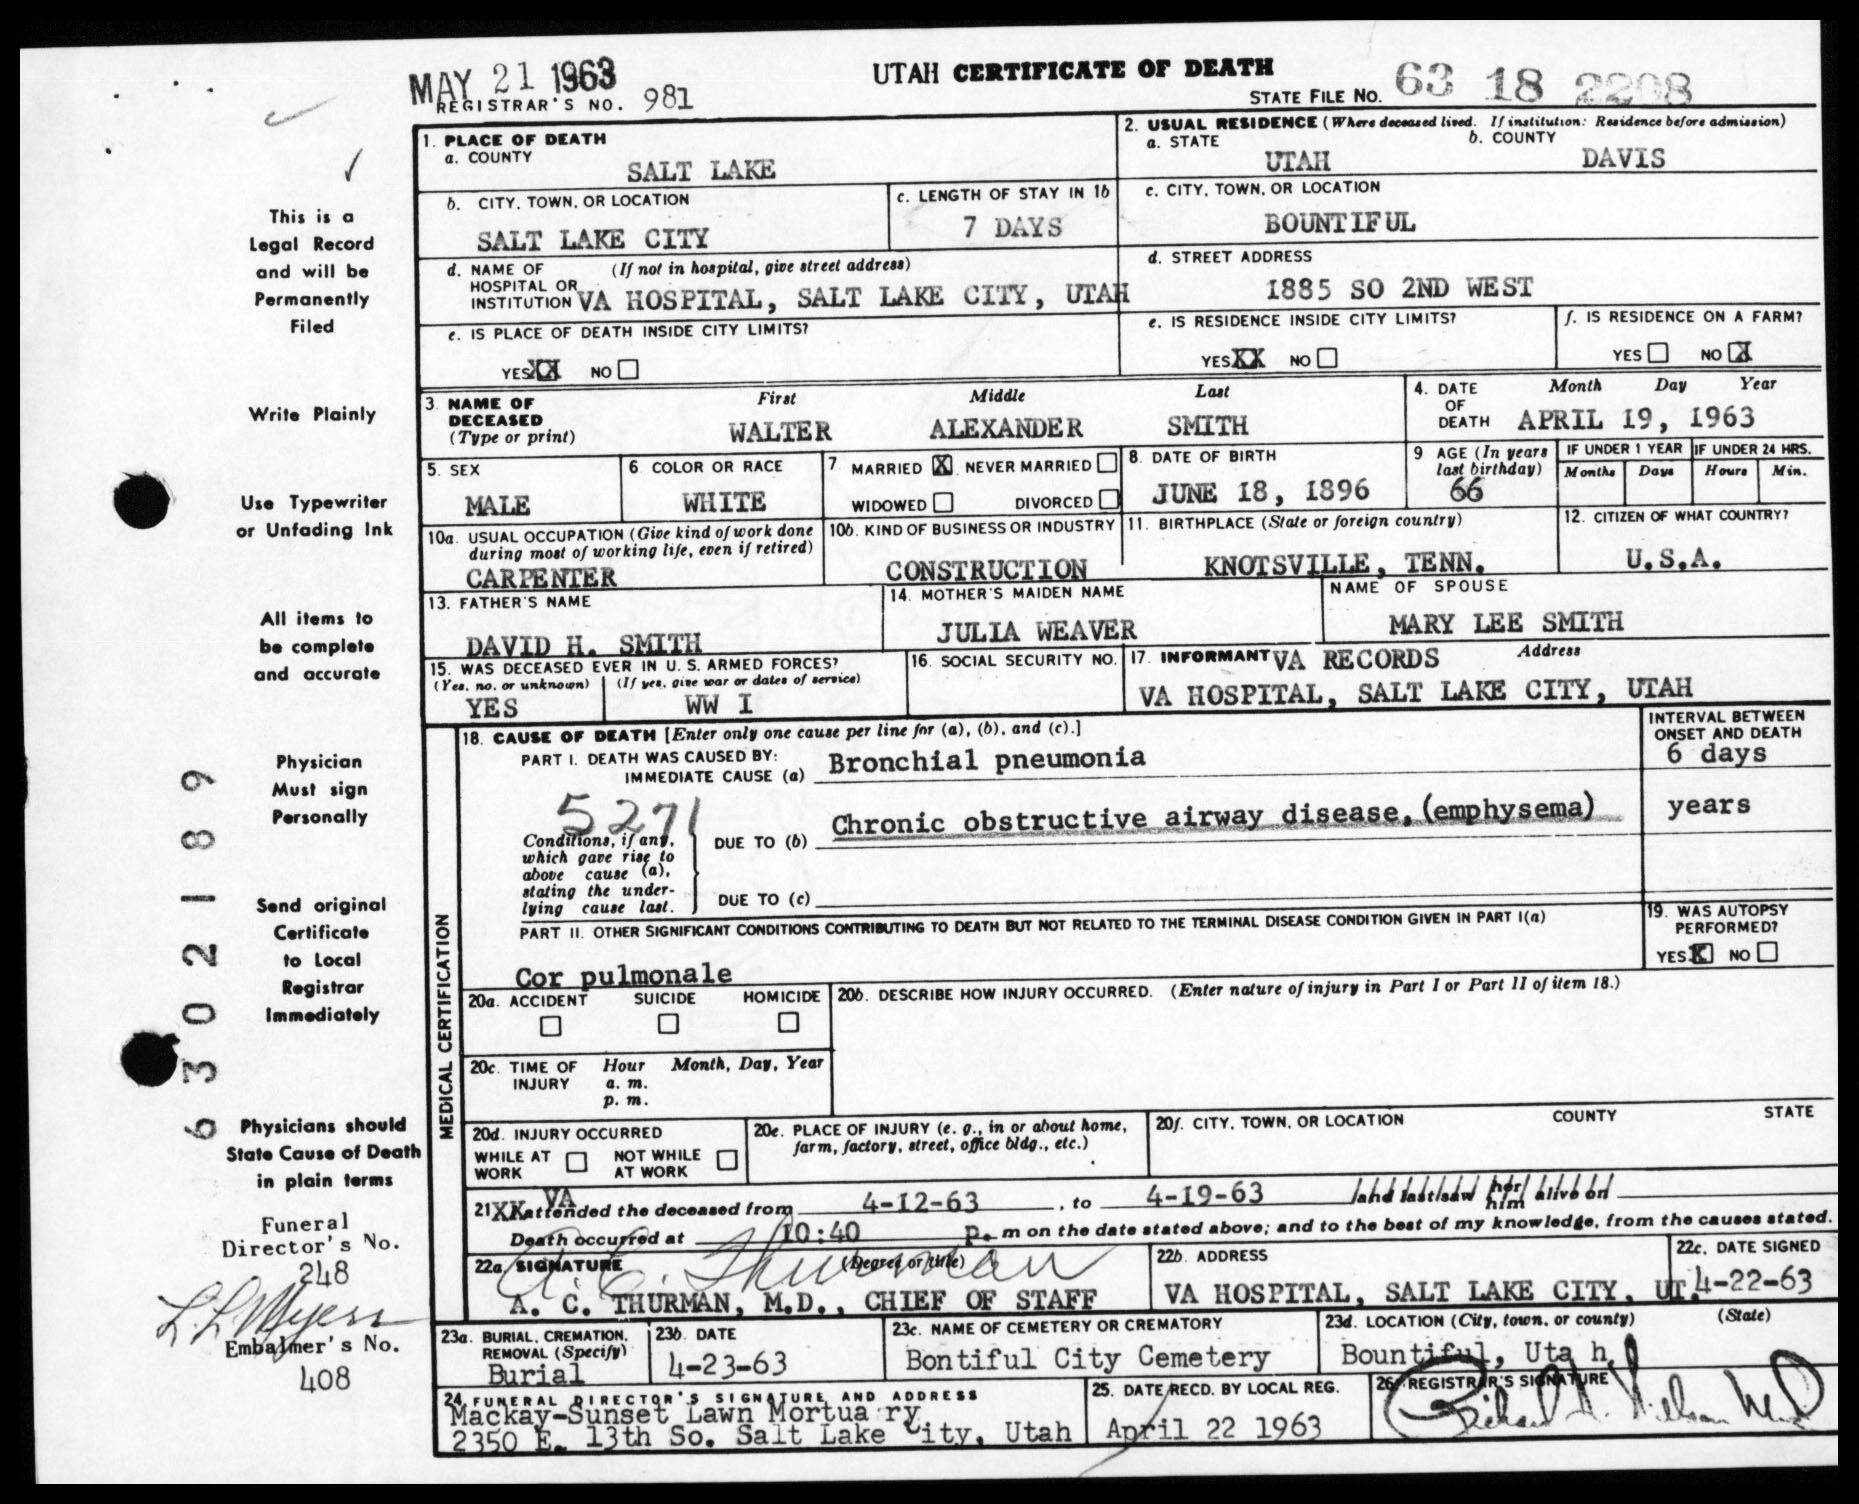 MAY 21 1963
UTAH CERTIFICATE OF DEATH
REGISTRAR'S NO. 981
STATE FILE NO. 63 18 2208
1. PLACE OF DEATH
a. COUNTY
SALT LAKE
2. USUAL RESIDENCE (Where deceased lived. If institution: Residence before admission)
a. STATE b. COUNTY
UTAH DAVIS
b. CITY, TOWN, OR LOCATION
SALT LAKE CITY
c. LENGTH OF STAY IN 1b
7 DAYS
c. CITY, TOWN, OR LOCATION
BOUNTIFUL
d. NAME OF (If not in hospital, give street address)
HOSPITAL OR
INSTITUTION VA HOSPITAL, SALT LAKE CITY, UTAH
d. STREET ADDRESS
1885 SO 2ND WEST
e. IS PLACE OF DEATH INSIDE CITY LIMITS?
YES XX NO
e. IS RESIDENCE INSIDE CITY LIMITS?
YES XX NO
f. IS RESIDENCE ON A FARM?
YES NO X
3. NAME OF DECEASED (Type or print)
First Middle Last
WALTER ALEXANDER SMITH
4. DATE OF DEATH
Month Day Year
APRIL 19, 1963
5. SEX
MALE
6 COLOR OR RACE
WHITE
7 MARRIED X NEVER MARRIED
WIDOWED DIVORCED
8. DATE OF BIRTH
JUNE 18, 1896
9 AGE (In years last birthday)
66
IF UNDER 1 YEAR
Months Days
IF UNDER 24 HRS.
Hours Min.
10a. USUAL OCCUPATION (Give kind of work done
during most of working life, even if retired)
CARPENTER
10b. KIND OF BUSINESS OR INDUSTRY
CONSTRUCTION
11. BIRTHPLACE (State or foreign country)
KNOTSVILLE, TENN.
12. CITIZEN OF WHAT COUNTRY?
U.S.A.
13. FATHER'S NAME
DAVID H. SMITH
14. MOTHER'S MAIDEN NAME
JULIA WEAVER
NAME OF SPOUSE
MARY LEE SMITH
15. WAS DECEASED EVER IN U. S. ARMED FORCES?
(Yes, no, or unknown) (If yes, give war or dates of service)
YES WW I
16. SOCIAL SECURITY NO.
17. INFORMANT VA RECORDS Address
VA HOSPITAL, SALT LAKE CITY, UTAH
MEDICAL CERTIFICATION
18. CAUSE OF DEATH [Enter only one cause per line for (a), (b), and (c).]
INTERVAL BETWEEN
ONSET AND DEATH
PART I. DEATH WAS CAUSED BY:
IMMEDIATE CAUSE (a) Bronchial pneumonia 6 days
5271
Conditions, if any,
which gave rise to
above cause (a),
stating the under-
lying cause last.
DUE TO (b) Chronic obstructive airway disease, (emphysema) years
DUE TO (c)
PART II. OTHER SIGNIFICANT CONDITIONS CONTRIBUTING TO DEATH BUT NOT RELATED TO THE TERMINAL DISEASE CONDITION GIVEN IN PART I(a)
Cor pulmonale
19. WAS AUTOPSY
PERFORMED?
YES X NO
20a. ACCIDENT SUICIDE HOMICIDE
20b. DESCRIBE HOW INJURY OCCURRED. (Enter nature of injury in Part I or Part II of item 18.)
20c. TIME OF INJURY Hour Month, Day, Year
a. m.
p. m.
20d. INJURY OCCURRED
WHILE AT WORK NOT WHILE AT WORK
20e. PLACE OF INJURY (e. g., in or about home,
farm, factory, street, office bldg., etc.)
20f. CITY, TOWN, OR LOCATION COUNTY STATE
21 XX VA attended the deceased from 4-12-63, to 4-19-63 and last saw her him alive on
Death occurred at 10:40 p. m on the date stated above; and to the best of my knowledge, from the causes stated.
22a. SIGNATURE (Degree or title)
A. C. Thurman
A. C. THURMAN, M.D., CHIEF OF STAFF
22b. ADDRESS
VA HOSPITAL, SALT LAKE CITY, UT.
22c. DATE SIGNED
4-22-63
23a. BURIAL, CREMATION,
REMOVAL (Specify)
Burial
23b. DATE
4-23-63
23c. NAME OF CEMETERY OR CREMATORY
Bontiful City Cemetery
23d. LOCATION (City, town, or county) (State)
Bountiful, Uta h
24. FUNERAL DIRECTOR'S SIGNATURE AND ADDRESS
Mackay-Sunset Lawn Mortua ry
2350 E. 13th So. Salt Lake City, Utah
25. DATE RECD. BY LOCAL REG.
April 22 1963
26. REGISTRAR'S SIGNATURE
This is a
Legal Record
and will be
Permanently
Filed
Write Plainly
Use Typewriter
or Unfading Ink
All items to
be complete
and accurate
Physician
Must sign
Personally
Send original
Certificate
to Local
Registrar
Immediately
Physicians should
State Cause of Death
in plain terms
Funeral
Director's No.
248
L L Myers
Embalmer's No.
408
6302189